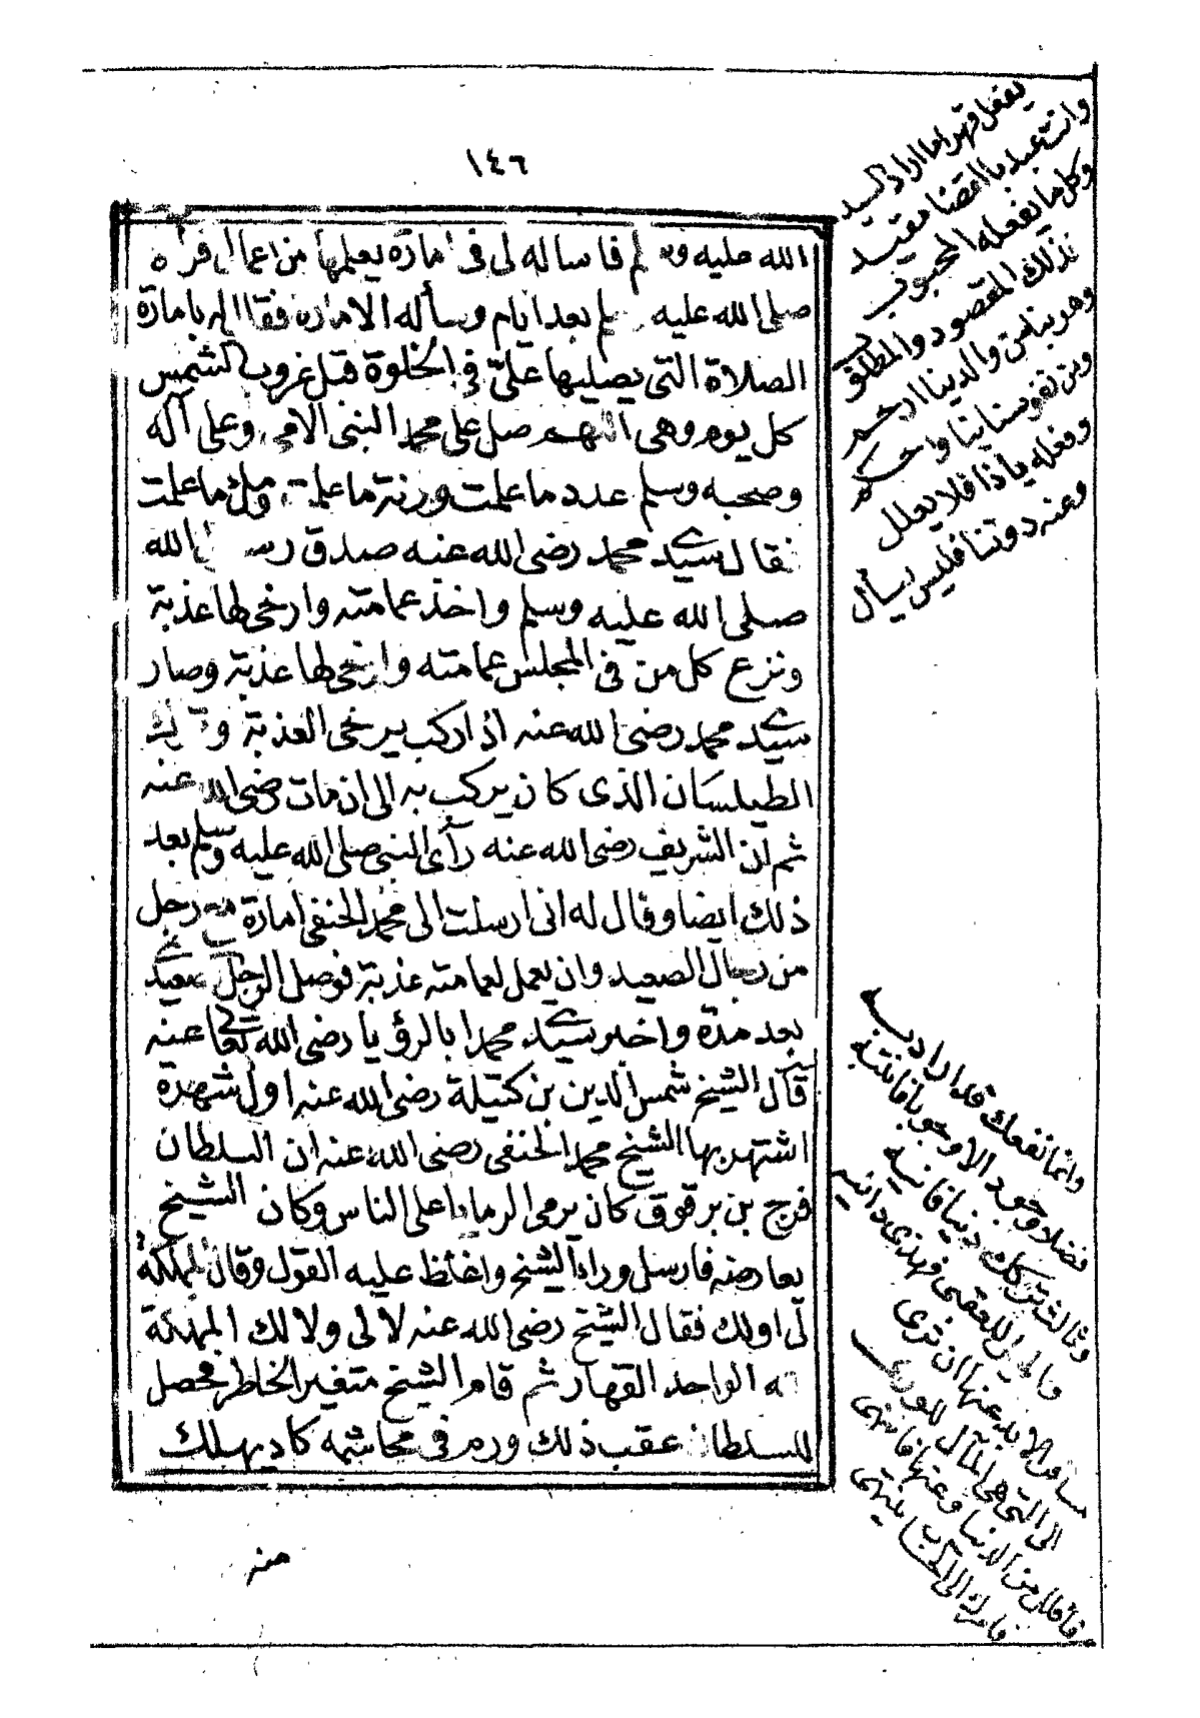 ١٤٦
الله عليه وسلم فاساله لى فى امارة يعلمها من اعمال فرآه
صلى الله عليه وسلم بعد ايام وسأله الامارة فقال له بامارة
الصلاة التى يصليها علىّ فى الخلوة قبل غروب الشمس
كل يوم وهى اللهم صل على محمد النبى الامى وعلى آله
وصحبه وسلم عدد ما علمت وزنة ما علمت وملء ما علمت
فقال سيدى محمد رضى الله عنه صدق رسول الله
صلى الله عليه وسلم واخذ عمامته وارخى لها عذبة
ونزع كل من فى المجلس عمامته وارخى لها عذبة وصار
سيدى محمد رضى الله عنه اذا ركب يرخى العذبة وترك
الطيلسان الذى كان يركب به الى ان مات رضى الله عنه
ثم ان الشريف رضى الله عنه رأى النبى صلى الله عليه وسلم بعد
ذلك ايضا وقال له انى ارسلت الى محمد الحنفى امارة مع رجل
من رجال الصعيد وان يعمل لعمامته عذبة فوصل الرجل
بعد مدة واخبر سيدى محمدا بالرؤيا رضى الله تعالى عنه
قال الشيخ شمس الدين بن كتيلة رضى الله عنه اول شهرة
اشتهر بها الشيخ محمد الحنفى رضى الله عنه ان السلطان
فرج بن برقوق كان يرمى الرمايا على الناس وكان الشيخ
يعارضه فارسل وراء الشيخ واغلظ عليه القول وقال المملكة
لى او لك فقال الشيخ رضى الله عنه لا لى ولا لك المملكة
لله الواحد القهار ثم قام الشيخ متغير الخاطر فحصل
للسلطان عقب ذلك ورم فى محاشمه كاد يهلك
منه
يفعل قهرا ما اراد السيد
وانت عبد بالقضا مقيد
وكل ما يفعله المحبوب
فذلك المقصود والمطلوب
وهو بنا من والدينا ارحم
ومن نفوسنا بنا واحكم
وفعله يا ذا فلا يعلل
وعنه دوننا فليس يسأل
وانما نفعك قد اراد به
فضلا وجود الا وجوبا فانتبه